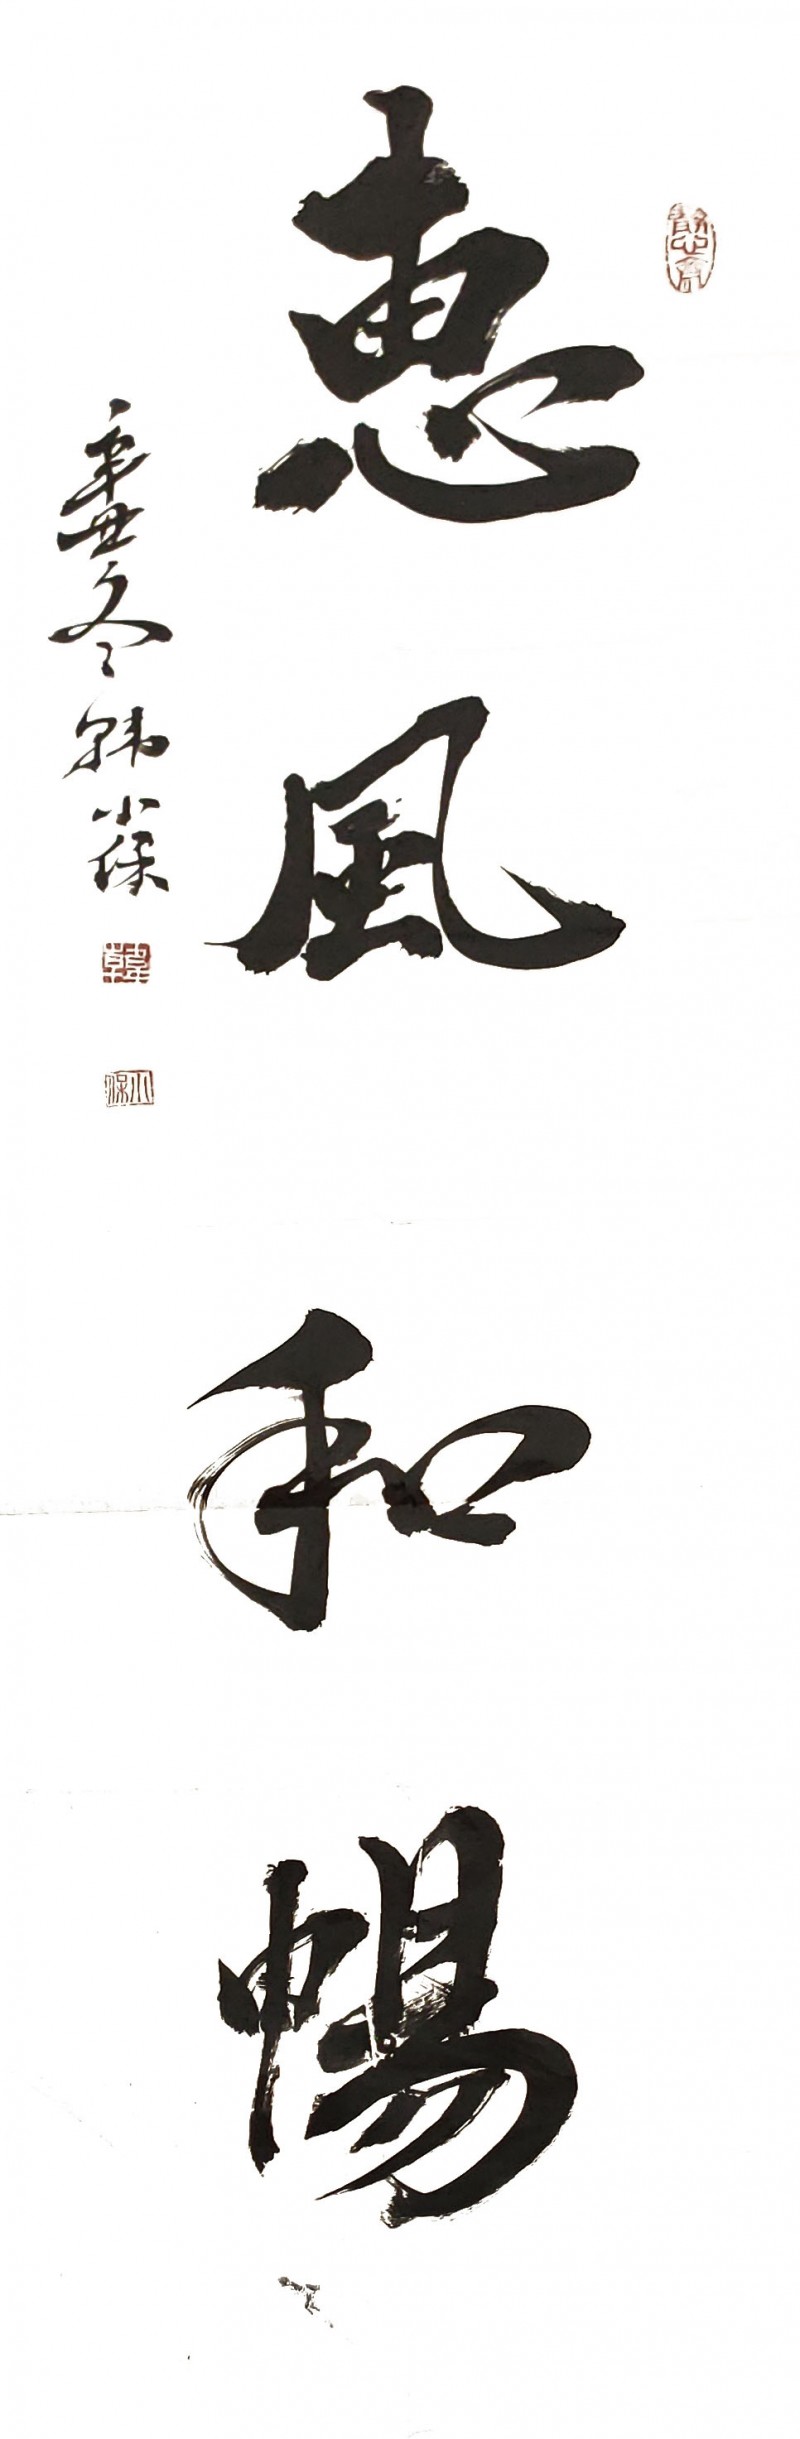 惠風和暢
辛丑冬韩小保
韓
小保